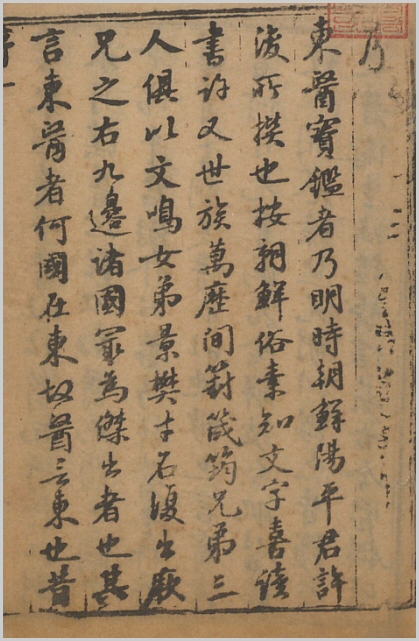 乃
東醫寶鑑者乃明時朝鮮陽平君許
浚所撰也按朝鮮俗素知文字喜讀
書許又世族萬歷間篈筬筠兄弟三
人俱以文鳴女弟景樊才名復出厥
兄之右九邊諸國冣為傑出者也其
言東醫者何國在東故醫言東也昔